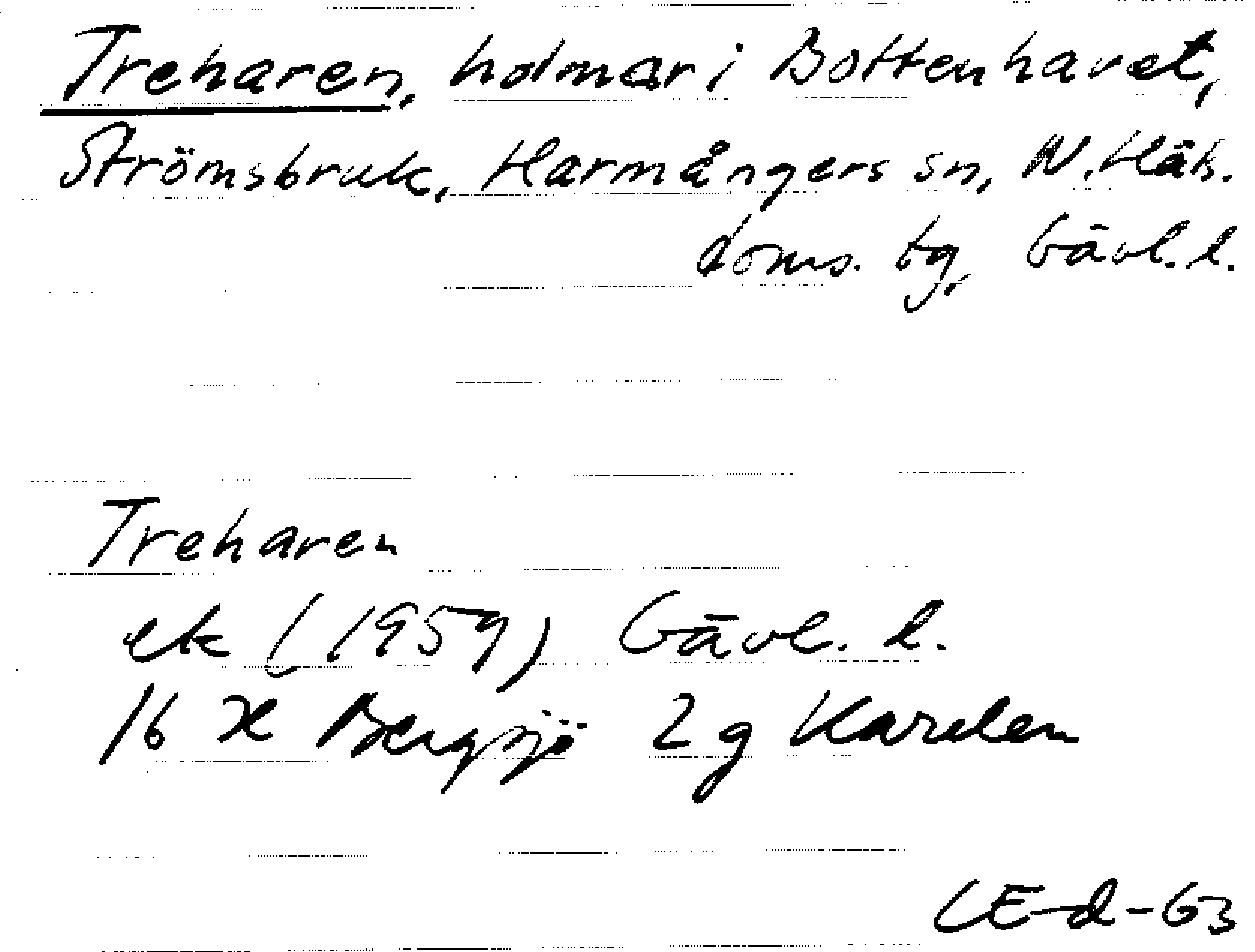 Treharen, holmar i Bottenhavet,
Strömsbruk, Harmångers sn, N. Häls.
doms. tg, Gävl. l.
Treharen
ek (1959) Gävl. l.
16 H Bergsjö 2 g Kardan
CE-d-63